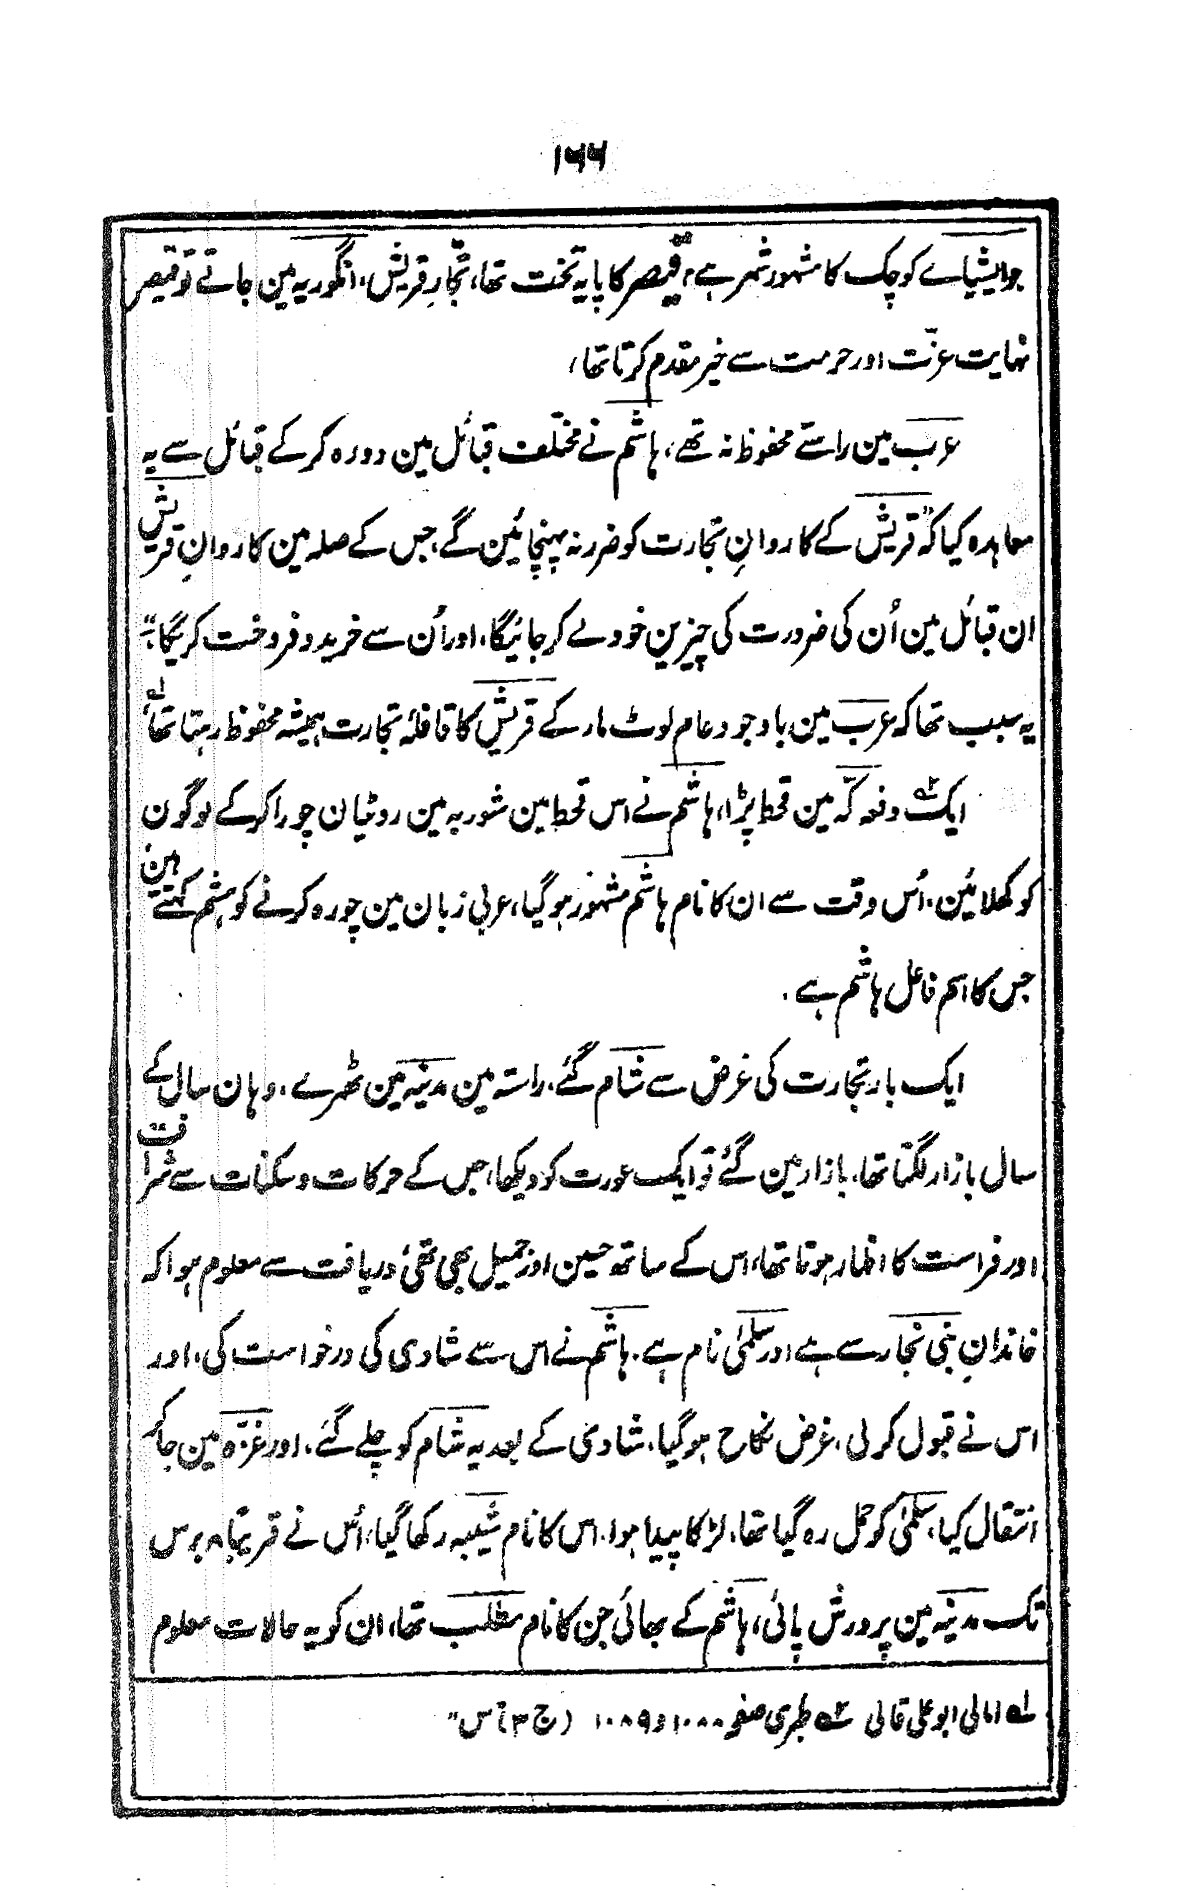 ۱۶۶
جو ایشیاے کوچک کا مشہور شہر ہے، قیصر کا پایۂ تخت تھا، تجّارِ قریش، انگوریہ مین جاتے تو قیصر
نہایت عزّت اور حرمت سے خیر مقدم کرتا تھا،
عرب مین راستے محفوظ نہ تھے، ہاشم نے مختلف قبائل مین دورہ کرکے قبائل سے یہ
معاہدہ کیا کہ "قریش کے کاروانِ تجارت کو ضرر نہ پہنچائین گے، جس کے صلہ مین کاروانِ قریش
ان قبائل مین اُن کی ضرورت کی چیزین خود لے کر جائیگا، اور اُن سے خرید و فروخت کریگا"
یہ سبب تھا کہ عرب مین باوجود عام لوٹ مار کے قریش کا قافلۂ تجارت ہمیشہ محفوظ رہتا تھا ؎۱
ایک ؎۲ دفعہ مکّہ مین قحط پڑا، ہاشم نے اس قحط مین شوربہ مین روٹیان چورا کرکے لوگون
کو کھلائین، اُس وقت سے ان کا نام ہاشم مشہور ہوگیا، عربی زبان مین چورہ کرنے کو ہشم کہتے ہین
جس کا اسم فاعل ہاشم ہے،
ایک بار تجارت کی غرض سے شام گئے، راستہ مین مدینہ مین ٹھرے، وہان سال کے
سال بازار لگتا تھا، بازار مین گئے تو ایک عورت کو دیکھا، جس کے حرکات و سکنات سے شرافت
اور فراست کا اظہار ہوتا تھا، اس کے ساتھ حسین اور جمیل بھی تھی، دریافت سے معلوم ہوا کہ
خاندانِ بنی نجار سے ہے اور سلمیٰ نام ہے، ہاشم نے اس سے شادی کی درخواست کی، اور
اس نے قبول کرلی، غرض نکاح ہوگیا، شادی کے بعد یہ شام کو چلے گئے، اور غزہ مین جاکر
انتقال کیا، سلمیٰ کو حمل رہ گیا تھا، لڑکا پیدا ہوا، اس کا نام شیبہ رکھا گیا، اُس نے قریبًا ۸ برس
تک مدینہ مین پرورش پائی، ہاشم کے بھائی جن کا نام مطلب تھا، ان کو یہ حالات معلوم
؎۱ امالی ابو علی قالی ؎۲ طبری صفحہ ۱۰۸۸ و ۱۰۸۹ (ج ۳) "س"